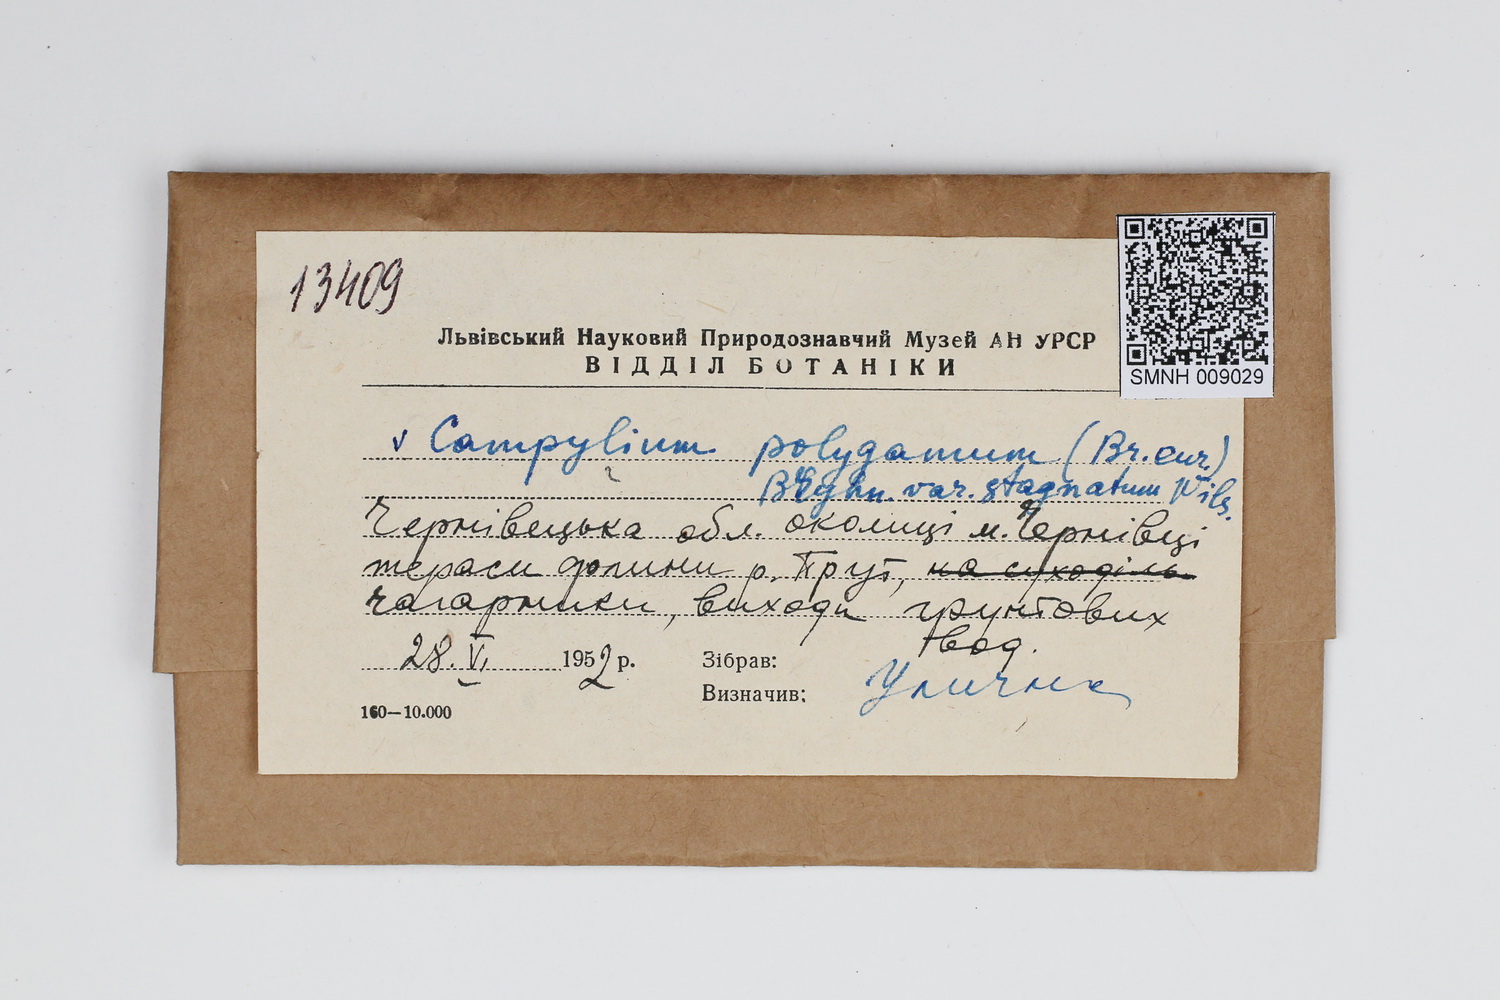 13409
SMNH 009029
Львівський Науковий Природознавчий Музей АН УРСР
ВІДДІЛ БОТАНІКИ
v Campylium polygamum (Br. eur.)
Bryhn. var. stagnatum Wils.
Чернівецька обл. околиці м. Чернівці
тераси долини р. Прут, на суходіль
чагарники, виходи грунтових
вод.
28. VI 1952 р. Зібрав:
Визначив: Улична
160—10.000